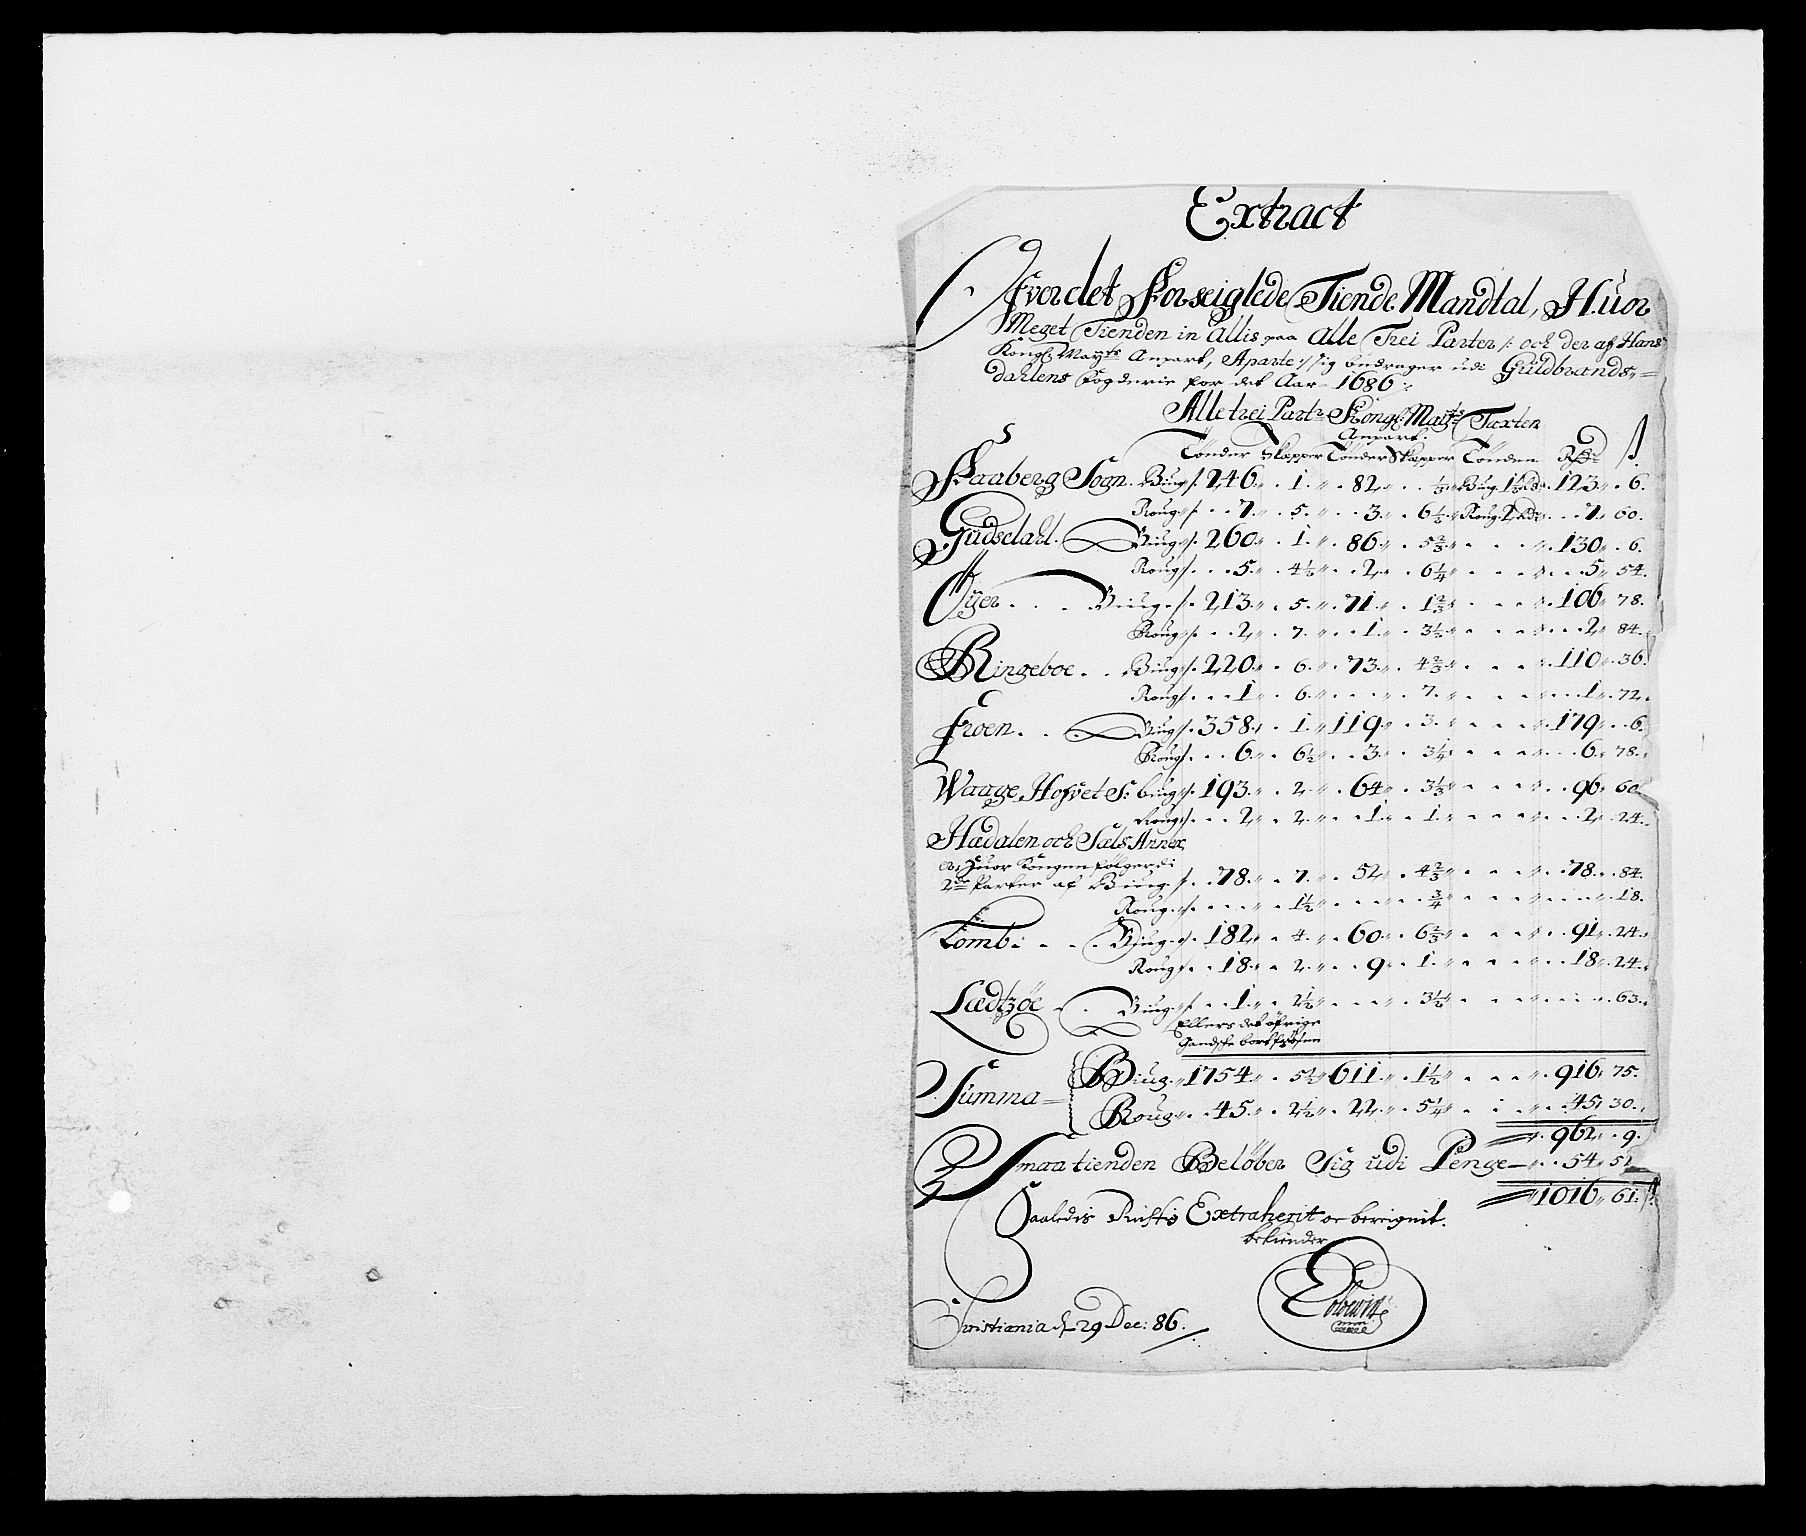 Extract
Ofver det Forseiglede Tiende Mandtal, Huor
Meget Tienden in Allis paa Alle Trei Parter /: och der af Hans
Kongl: Mayts Anpart, Aparte :/ sig bedrager udi Guldbrands,,=
dahlens Fogderie for det Aar 1686 :,
Alle trei Partr Kongl: Maits Taxten
Anpart:
Tönder Skapper Tönder Skapper Tönden Rdr ß
Faaberg Sogn. Biug 246. 1. 82. 1/3 Biug. 1/2 Rdr 123. 6.
Roug 7. 5. 3. 6 1/3 Roug. 1 Rdr 7. 60.
Gudsdahl. Biug 260. 1. 86. 5 2/3 130. 6.
Roug 5. 4 1/2 2. 6 1/4 5. 54.
Öyer Biug 213. 5. 71. 1 2/3 106. 78.
Roug 2. 7. 1. 3 1/2 2. 84.
Ringeboe Biug 220. 6. 73. 4 2/3 110. 36.
Roug 1. 6. 7. 1. 72.
Froen Biug 358. 1. 119. 3. 179. 6.
Roug 6. 6 1/2 3. 3 1/4 6. 78.
Waage Hofvet S: biug 193. 2. 64. 3 1/3 96. 60.
Roug 2. 2. 1. 1. 2. 24.
Hædalen och Sæls Annex,
Huor Kongen følger di
2de Parter af Biug 78. 7. 52. 4 2/3 78. 84.
Roug 1 1/2 3/4 18.
Lomb: Biug 182. 4. 60. 6 2/3 91. 24.
Roug 18. 2. 9. 1. 18. 24.
Lædtzöe Biug 1. 2 1/2 3 1/2 63.
Ellers det öfrige
Gandsche bortfrosen
Summa Biug 1754. 5 1/2 611. 1 1/2 916. 75.
Roug 45. 2 1/2 22. 5 1/4 45. 30.
962. 9.
Smaa tienden Beløber Sig udi Penge 54. 52
1016. 61.
Saaledis Extraherit oc beregnit.
bekiender
Christiania d. 29 Dec: 86.